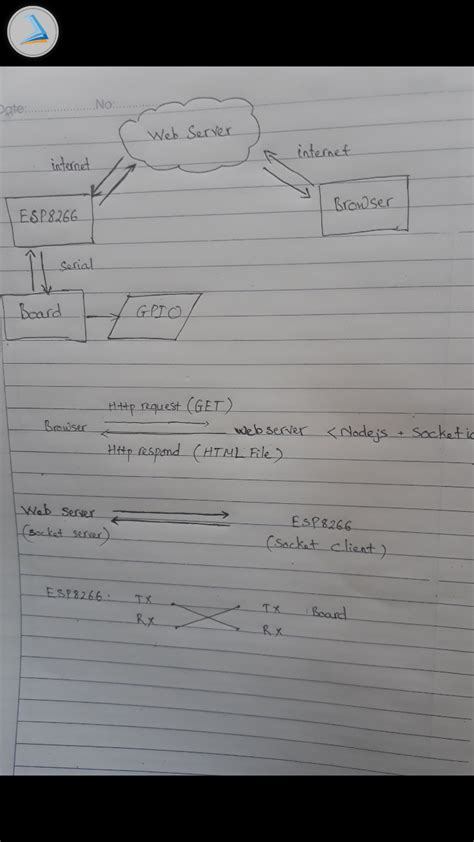 Date: No:
Web Server
internet
internet
ESP8266
Browser
serial
Board
GPIO
Http request (GET)
Browser
Webserver < Nodejs + Socketio
Http respond (HTML File)
Web server
(socket server)
ESP8266
(Socket client)
ESP8266: Tx
Tx Board
Rx
Rx